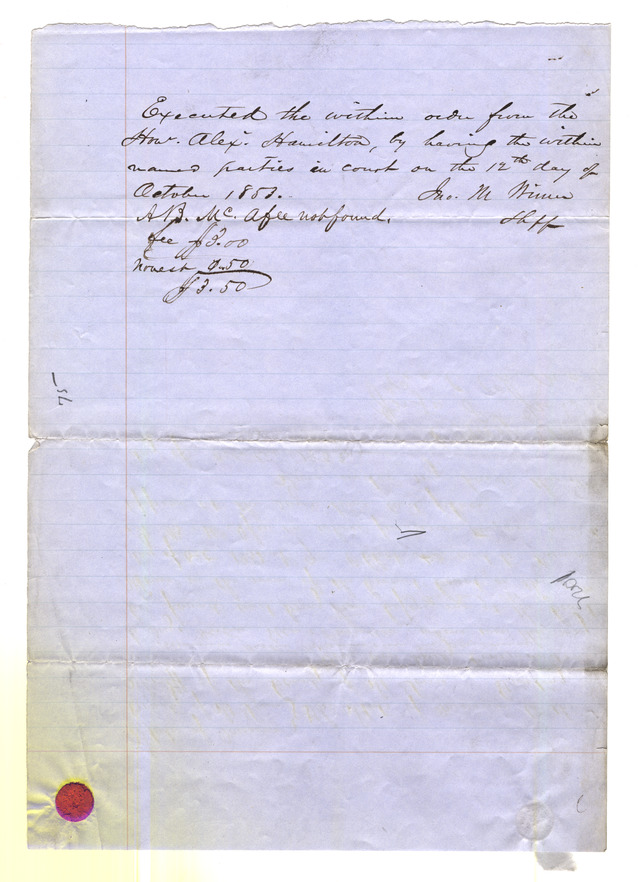 Executed the within order from the
Hon. Alexr. Hamilton, by having the within
names parties in court on the 12th day of
October 1853. Jno. M. Winn
A.B. Mc. Afee not found. Shff
fee $3.00
Nonest 0.50
$3.50